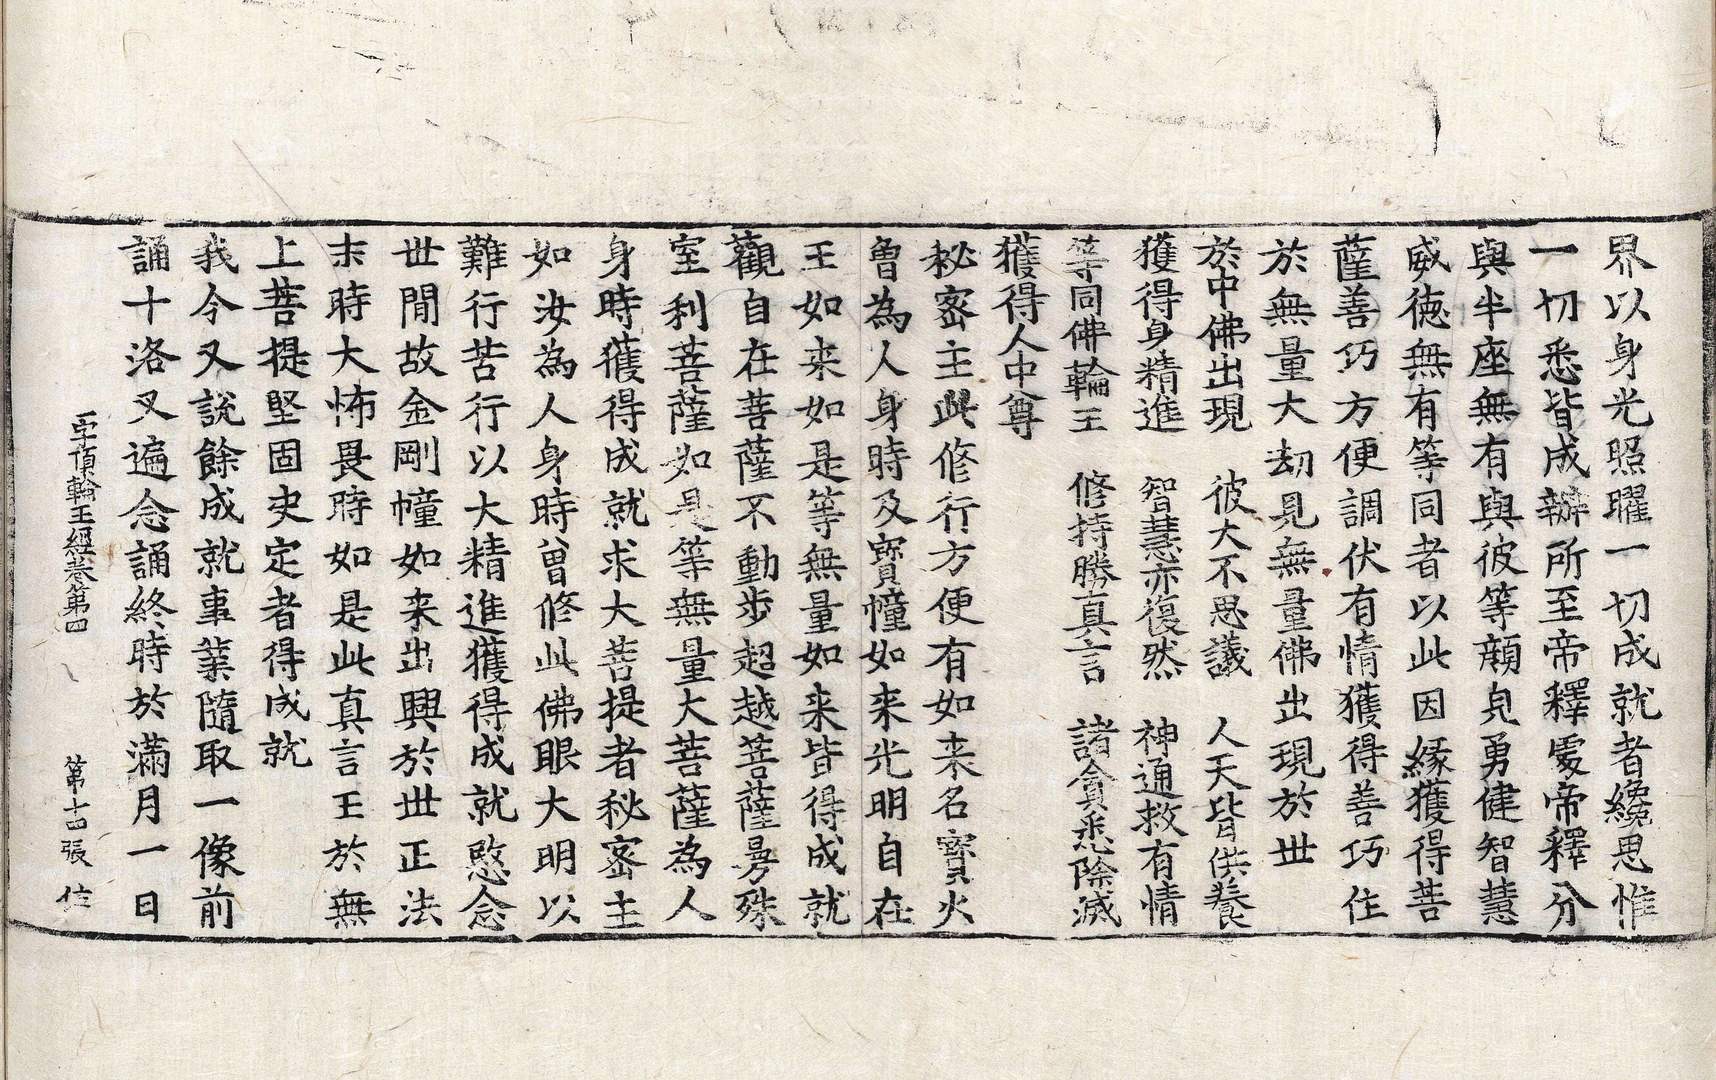 界以身光照曜一切成就者纔思惟
一切悉皆成辦所至帝釋處帝釋分
與半座無有與彼等顔皃勇健智慧
威德無有等同者以此因緣獲得菩
薩善巧方便調伏有情獲得善巧住
於無量大劫見無量佛出現於世
於中佛出現　彼大不思議　人天皆供養
獲得身精進　智慧亦復然　神通救有情
等同佛輪王　修持勝真言　諸貪悉除滅
獲得人中尊
秘密主此修行方便有如来名寶火
曾為人身時及寶幢如来光明自在
王如来如是等無量如来皆得成就
觀自在菩薩不動步超越菩薩曼殊
室利菩薩如是等無量大菩薩為人
身時獲得成就求大菩提者秘密主
如汝為人身時曾修此佛眼大明以
難行苦行以大精進獲得成就愍念
世間故金剛幢如来出興於世正法
末時大怖畏時如是此真言王於無
上菩提堅固史定者得成就
我今又說餘成就事業隨取一像前
誦十洛叉遍念誦終時於滿月一日
一字頂輪王經卷第四　第十四張　位